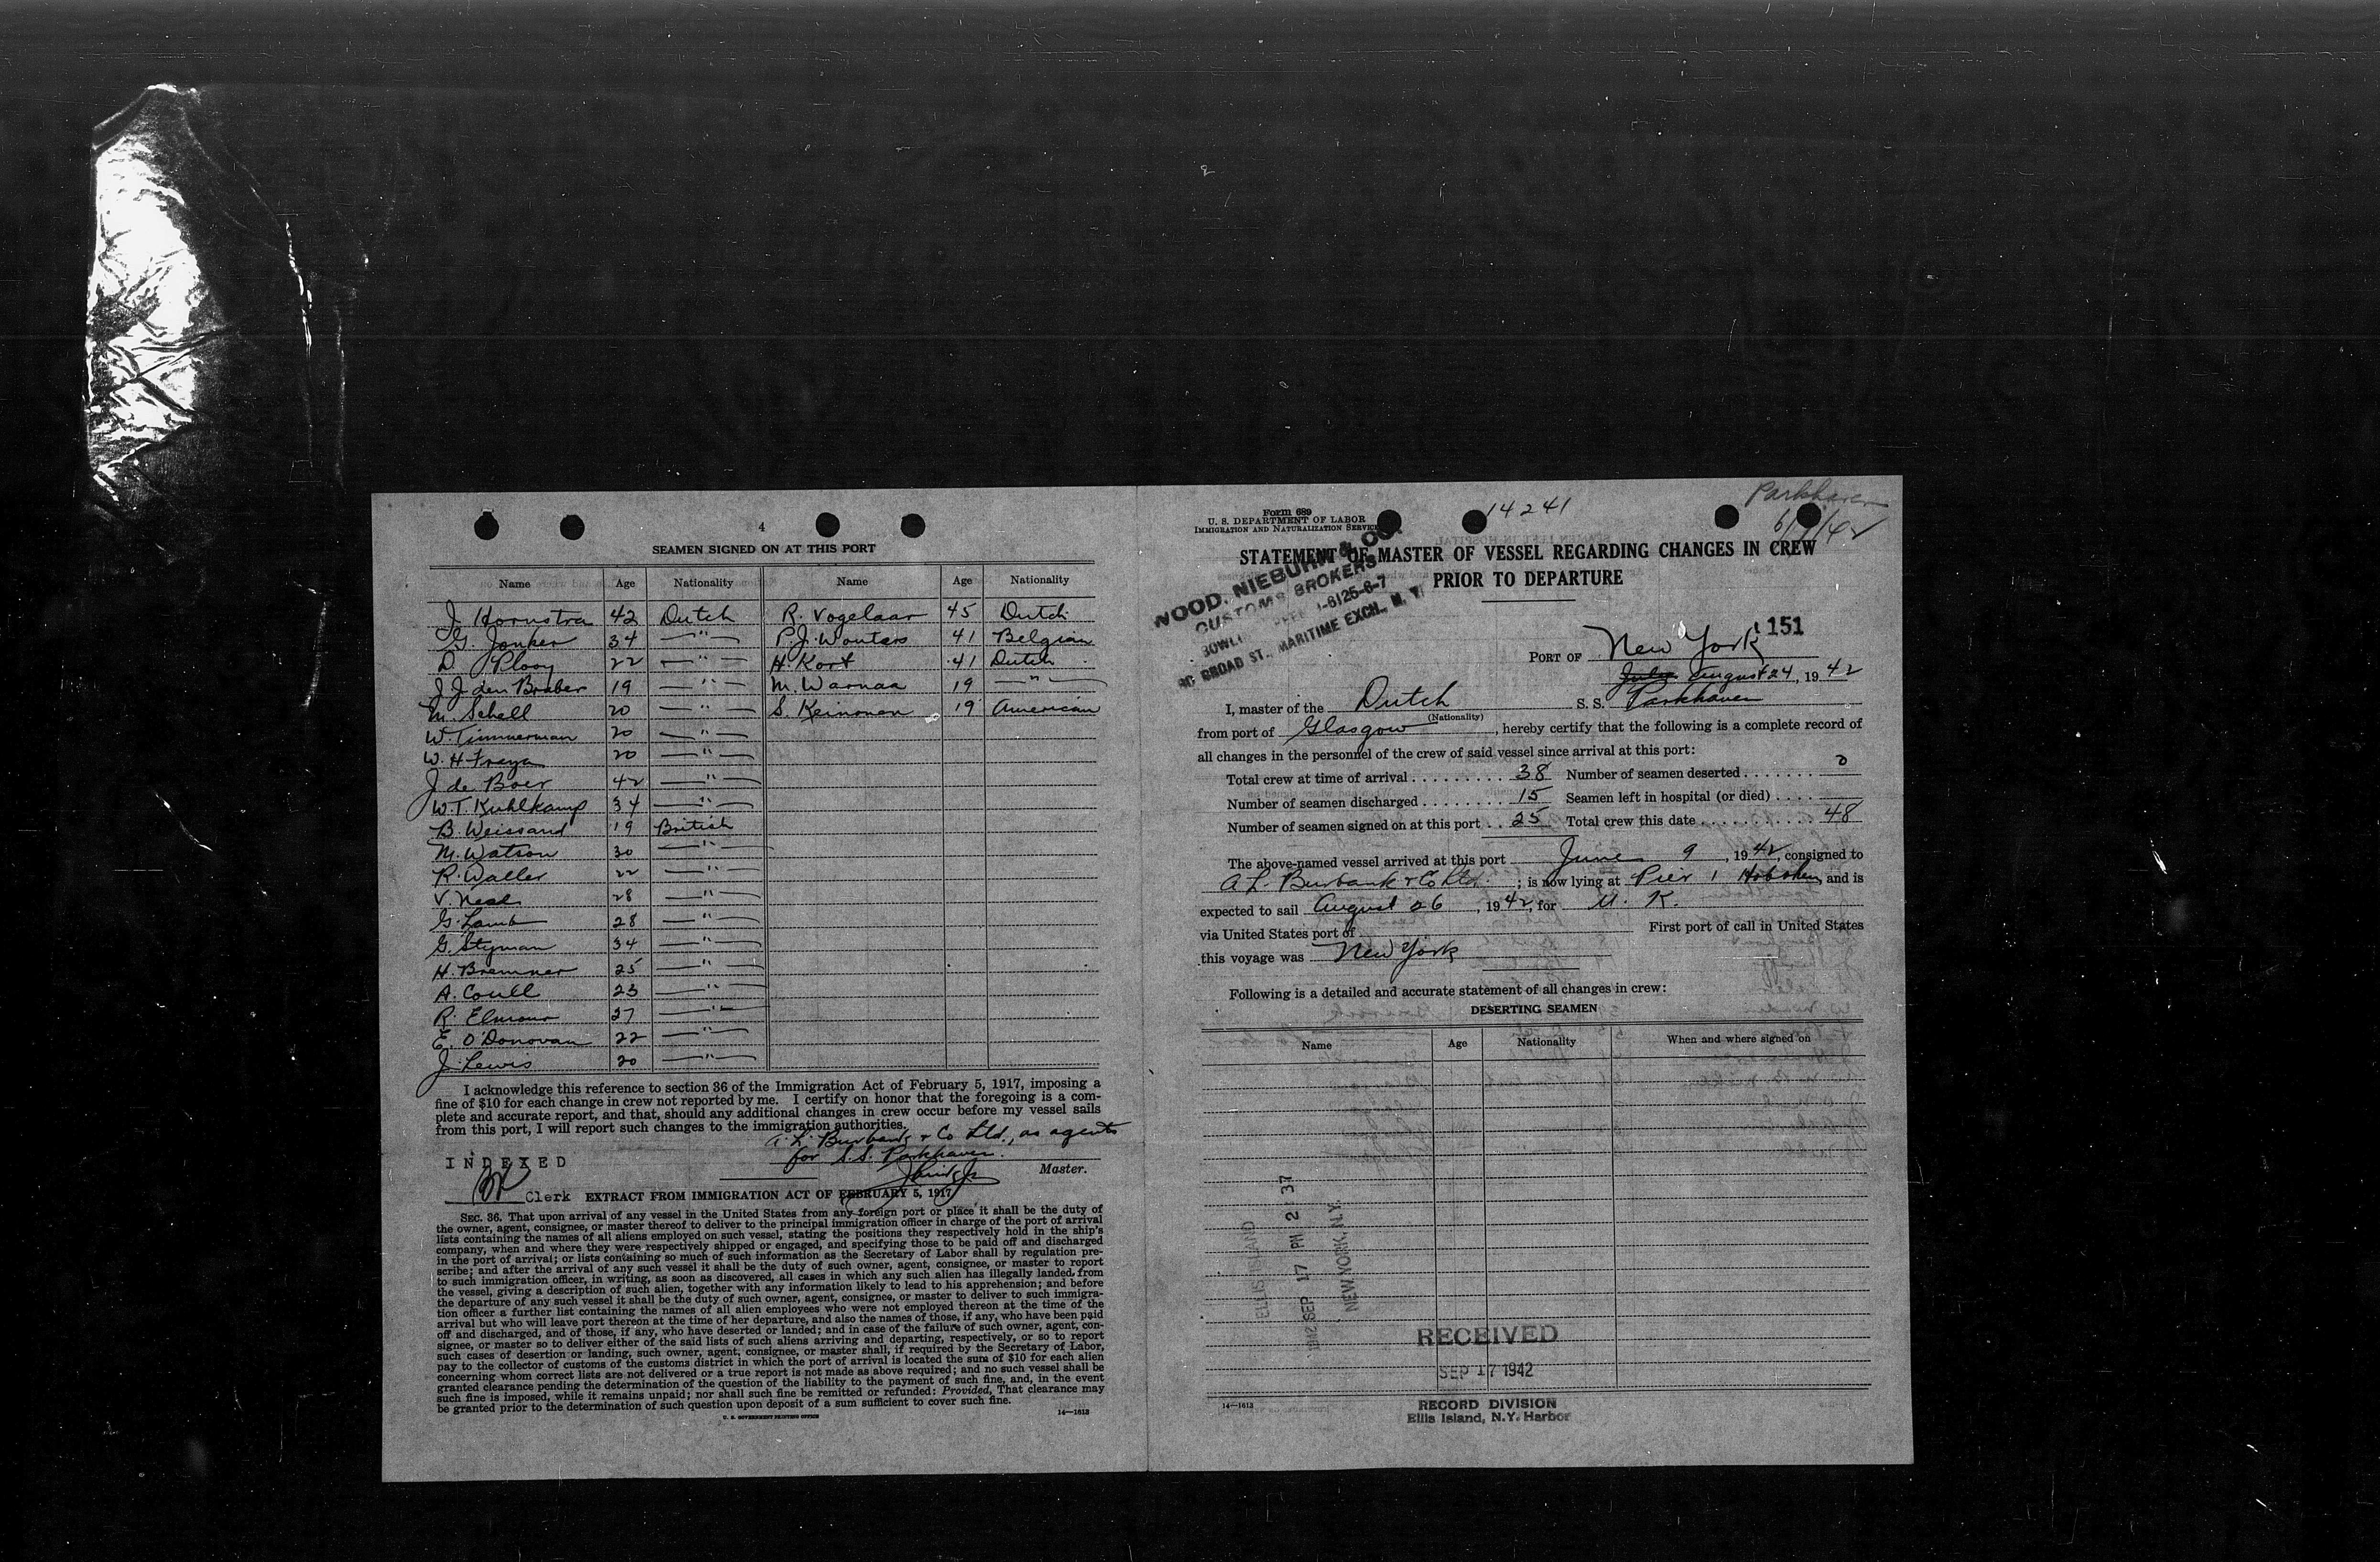 4
SEAMEN SIGNED ON AT THIS PORT
Name Age Nationality Name Age Nationality
J. Hornstra 42 Dutch R. Vogelaar 45 Dutch
G. Jonker 34 —"— P. J. Wouters 41 Belgian
D. Plooy 22 —"— H. Kort 41 Dutch
J J den Braber 19 —"— M. Warnaa 19 —"—
M. Schell 20 —"— S. Keinonen 19 American
W. Timmerman 20 —"—
W. H Freya 20 —"—
J de Boer 42 —"—
W. T. Kuhlkamp 34 —"—
B. Weissand 19 British
M. Watson 30 —"—
R. Waller 22 —"—
V. Neal 28 —"—
G. Lamb 28 —"—
G. Styman 34 —"—
H. Bremner 25 —"—
A. Coull 23 —"—
R. 27 —"—
E. O'Donovan 22 —"—
J. Lewis 20 —"—
I acknowledge this reference to section 36 of the Immigration Act of February 5, 1917, imposing a
fine of $10 for each change in crew not reported by me. I certify on honor that the foregoing is a com-
plete and accurate report, and that, should any additional changes in crew occur before my vessel sails
from this port, I will report such changes to the immigration authorities.
A. L. Burbank & Co Ltd., as agents
for S.S. Parkhaven.
INDEXED
Master.
Clerk
EXTRACT FROM IMMIGRATION ACT OF FEBRUARY 5, 1917
SEC. 36. That upon arrival of any vessel in the United States from any foreign port or place it shall be the duty of
the owner, agent, consignee, or master thereof to deliver to the principal immigration officer in charge of the port of arrival
lists containing the names of all aliens employed on such vessel, stating the positions they respectively hold in the ship's
company, when and where they were respectively shipped or engaged, and specifying those to be paid off and discharged
in the port of arrival; or lists containing so much of such information as the Secretary of Labor shall by regulation pre-
scribe; and after the arrival of any such vessel it shall be the duty of such owner, agent, consignee, or master to report
to such immigration officer, in writing, as soon as discovered, all cases in which any such alien has illegally landed from
the vessel, giving a description of such alien, together with any information likely to lead to his apprehension; and before
the departure of any such vessel it shall be the duty of such owner, agent, consignee, or master to deliver to such immigra-
tion officer a further list containing the names of all alien employees who were not employed thereon at the time of the
arrival but who will leave port thereon at the time of her departure, and also the names of those, if any, who have been paid
off and discharged, and of those, if any, who have deserted or landed; and in case of the failure of such owner, agent, con-
signee, or master so to deliver either of the said lists of such aliens arriving and departing, respectively, or so to report
such cases of desertion or landing, such owner, agent, consignee, or master shall, if required by the Secretary of Labor,
pay to the collector of customs of the customs district in which the port of arrival is located the sum of $10 for each alien
concerning whom correct lists are not delivered or a true report is not made as above required; and no such vessel shall be
granted clearance pending the determination of the question of the liability to the payment of such fine, and, in the event
such fine is imposed, while it remains unpaid; nor shall such fine be remitted or refunded: Provided, That clearance may
be granted prior to the determination of such question upon deposit of a sum sufficient to cover such fine.
U. S. GOVERNMENT PRINTING OFFICE
14—1613
Form 689
U. S. DEPARTMENT OF LABOR
IMMIGRATION AND NATURALIZATION SERVICE
14241
Parkhaven
STATEMENT OF MASTER OF VESSEL REGARDING CHANGES IN CREW
PRIOR TO DEPARTURE
WOOD, NIEBUHR & CO.
CUSTOMS BROKERS
80 BROAD ST., MARITIME EXCH., N. Y.
151
PORT OF New York
August 24, 1942
I, master of the Dutch S. S. Parkhaven
(Nationality)
from port of Glasgow, hereby certify that the following is a complete record of
all changes in the personnel of the crew of said vessel since arrival at this port:
Total crew at time of arrival 38 Number of seamen deserted 0
Number of seamen discharged 15 Seamen left in hospital (or died)
Number of seamen signed on at this port 25 Total crew this date 48
The above-named vessel arrived at this port June 9, 1942, consigned to
A. L. Burbank & Co Ltd. ; is now lying at Pier 1 Hoboken, and is
expected to sail August 26, 1942, for U. K.
via United States port of First port of call in United States
this voyage was New York
Following is a detailed and accurate statement of all changes in crew:
DESERTING SEAMEN
Name Age Nationality When and where signed on
ELLIS ISLAND
1942 SEP 17 PM 2 37
NEW YORK, N.Y.
RECEIVED
SEP 17 1942
RECORD DIVISION
Ellis Island, N.Y. Harbor
14—1613